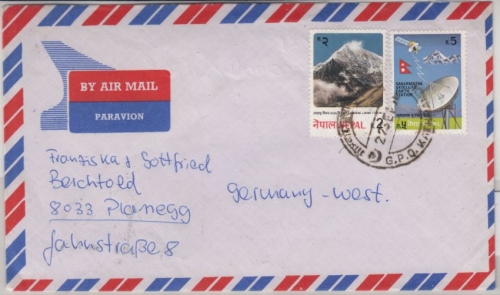 BY AIR MAIL
PARAVION
रु२
5
SAGARMATHA
SATELLITE
EARTH
STATION
नेपाल NEPAL
G.P.O.
Franziska & Gottfried
Berchtold
8033 Planegg
Jahnstraße 8
Germany-West.